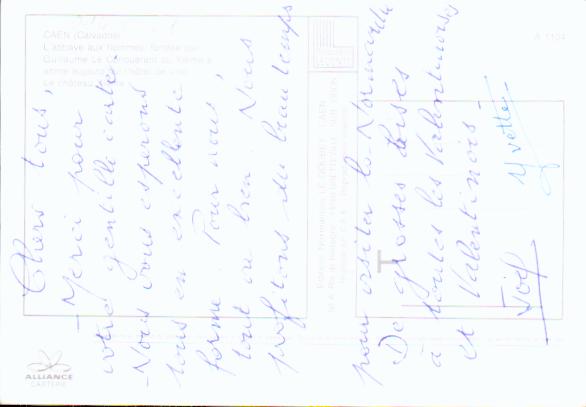 CAEN (Calvados)
L'abbaye aux hommes, fondée par
Guillaume Le Conquérant au XIème s.
abrite aujourd'hui l'hôtel de ville
Le château
A 1104
LE GOUBEY
ALLIANCE
CARTERIE
Chers tous,
Merci pour
votre gentille carte.
Nous vous espérons
tous en excellente
forme. Pour nous,
tout va bien. Nous
profitons du beau temps
pour visiter la Normandie
De grosses bises
à toutes les Valentinoises
et Valentinois -
Joël Yvette